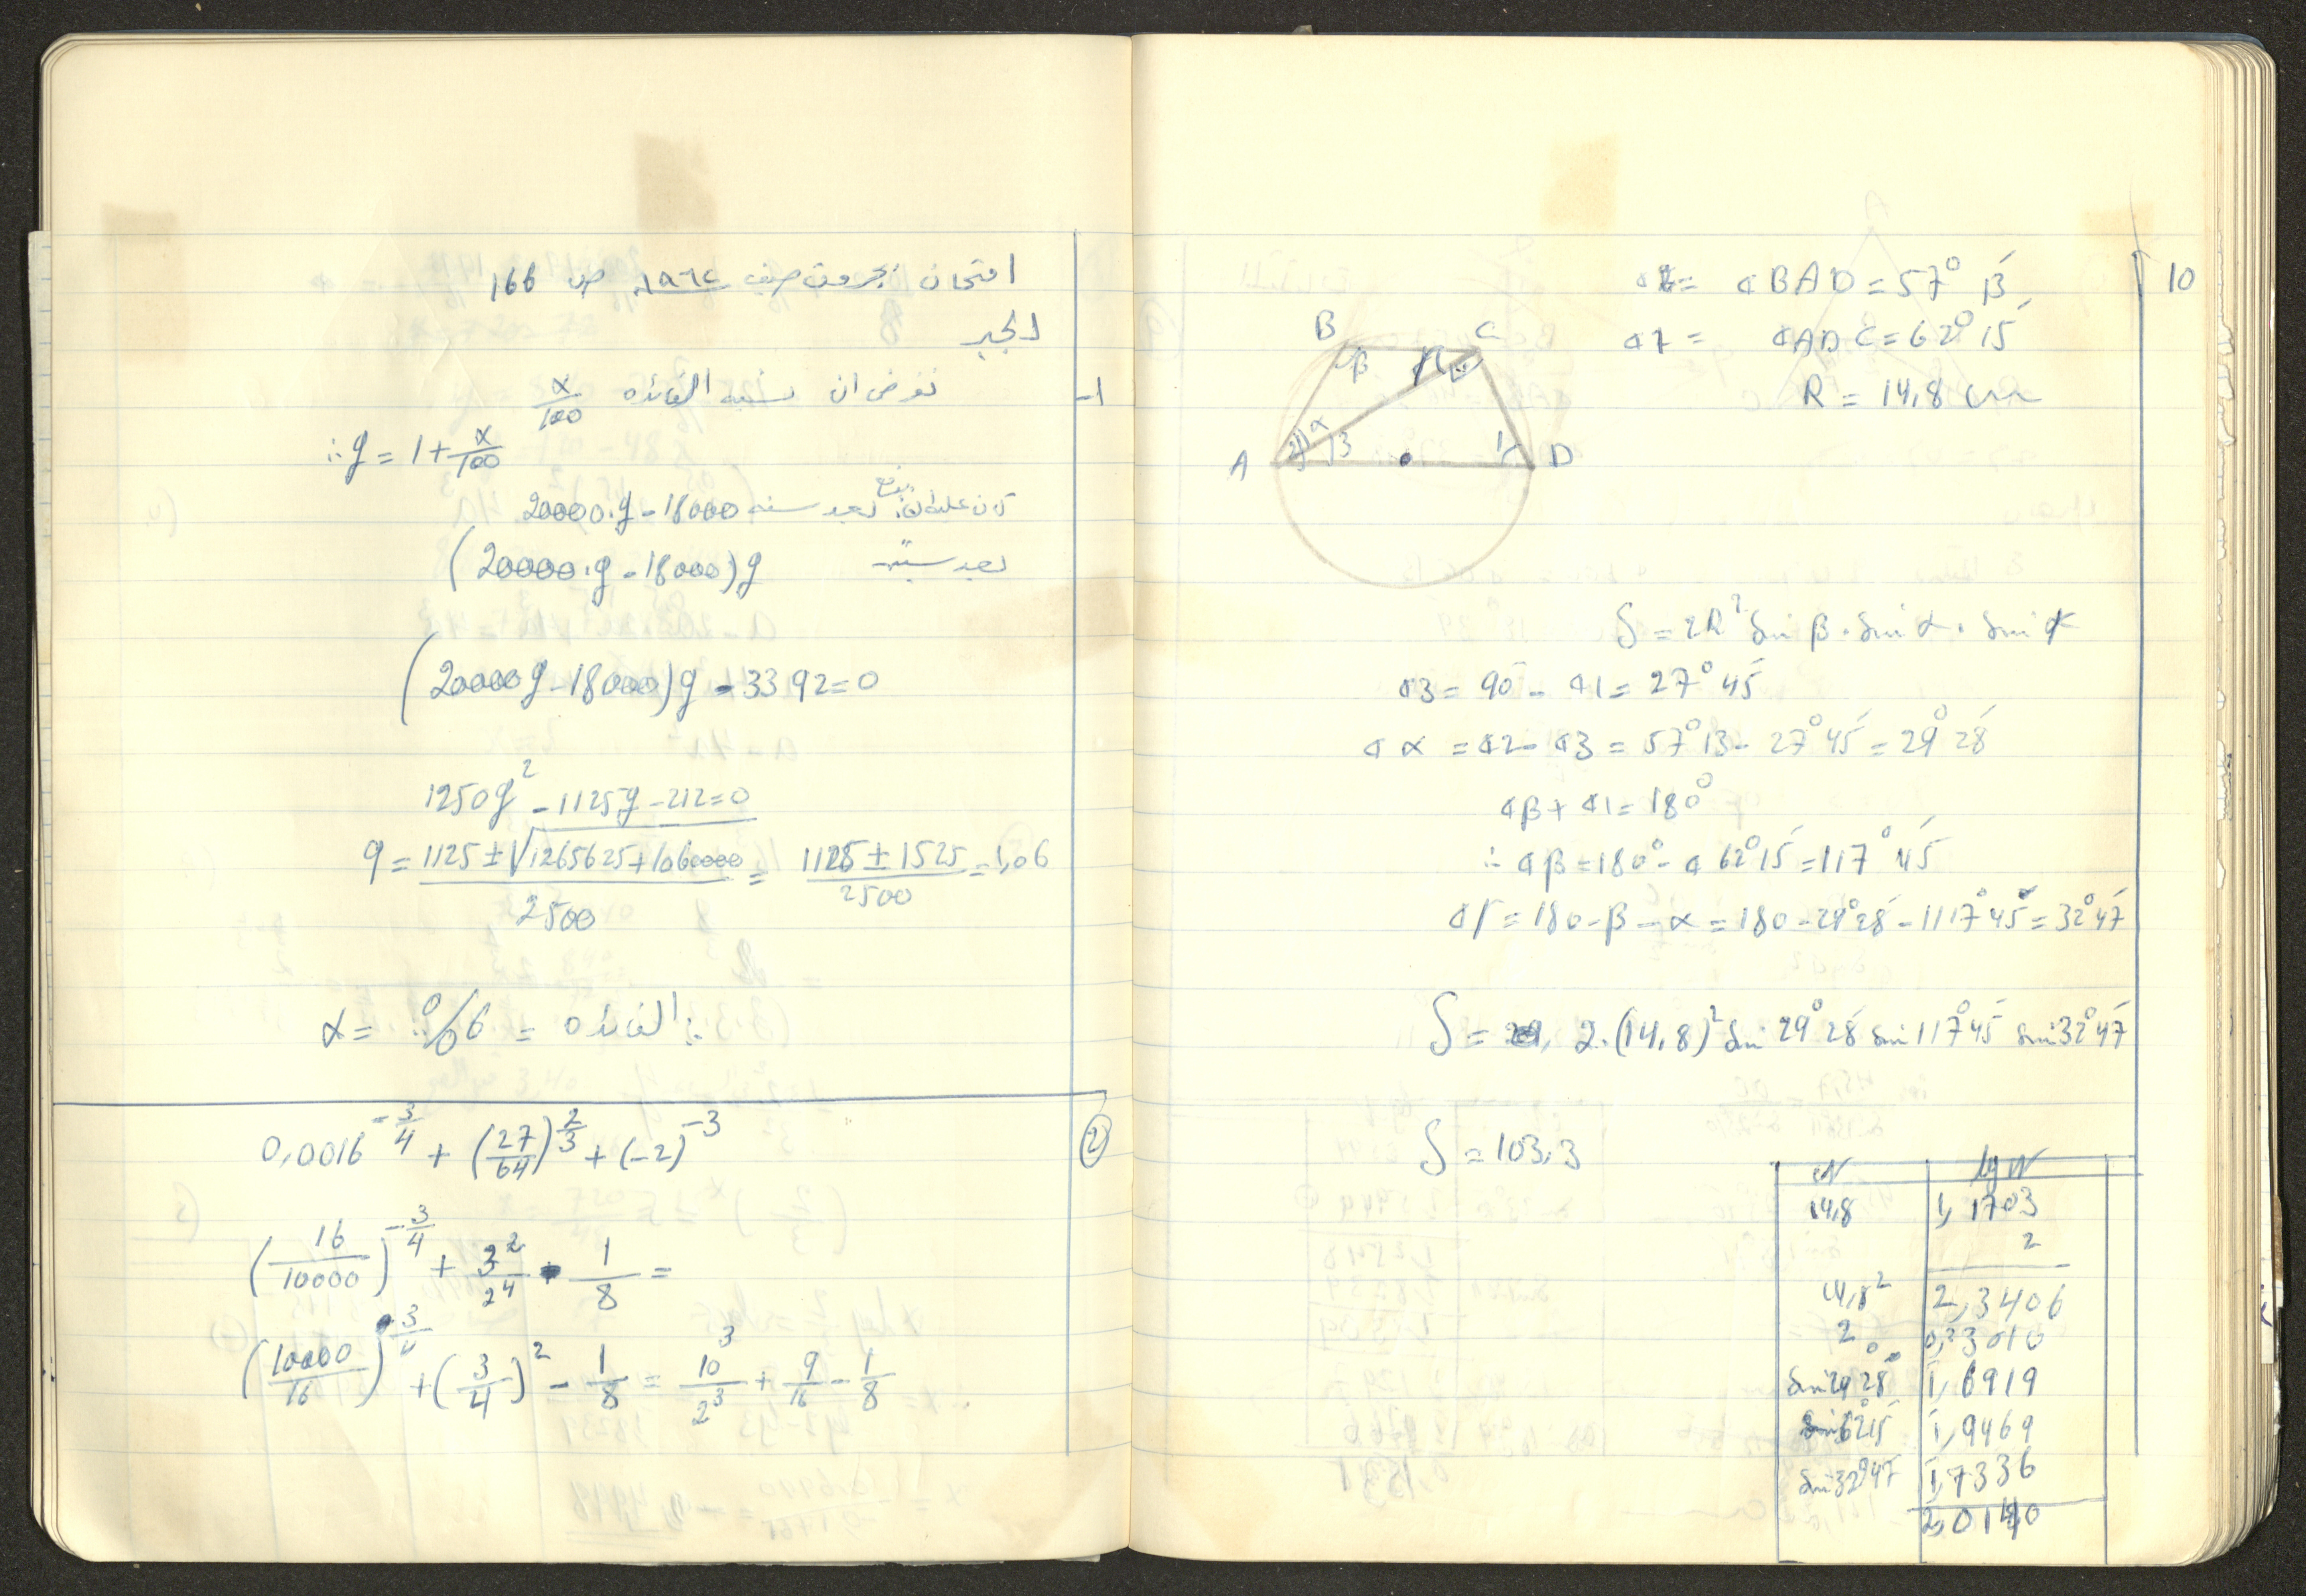 امتحان بجروت صيف ١٩٦٢ ص 166
الجبر
1- نفرض ان نسبة الفائده x/100
∴ q = 1 + x/100
كان عليه ان يدفع بعد سنه 20000.q - 18000
بعد سنتين (20000.q - 18000)q
(20000q - 18000)q - 3392 = 0
1250q² - 1125q - 212 = 0
q = (1125 ± √1265625 + 1060000) / 2500 = (1125 ± 1525) / 2500 = 1,06
∴ الفائده = 6% = x
② 0,0016^(-3/4) + (27/64)^(2/3) + (-2)^(-3)
(16/10000)^(-3/4) + 3²/2⁴ - 1/8 =
(10000/16)^(3/4) + (3/4)² - 1/8 = 10³/2³ + 9/16 - 1/8
10
∢2 = ∢BAD = 57° 13′
∢1 = ∢ADC = 62° 15′
R = 14,8 cm
B C
β γ
2 α 3 1
A D
S = 2R² sin β . sin α . sin γ
∢3 = 90° - ∢1 = 27° 45′
∢α = ∢2 - ∢3 = 57° 13 - 27° 45′ = 29° 28′
∢β + ∢1 = 180°
∴ ∢β = 180° - ∢ 62° 15′ = 117° 45′
∢γ = 180 - β - α = 180 - 29° 28′ - 1117° 45′ = 32° 47′
S = 2.(14,8)² sin 29° 28′ sin 117° 45′ sin 32° 47′
S = 103,3
N | lg N
14,8 | 1,1703
2
14,8² | 2,3406
2 | 0,3010
sin 29° 28′ | 1̄,6919
sin 62° 15′ | 1̄,9469
sin 32° 47′ | 1̄,7336
2,0140